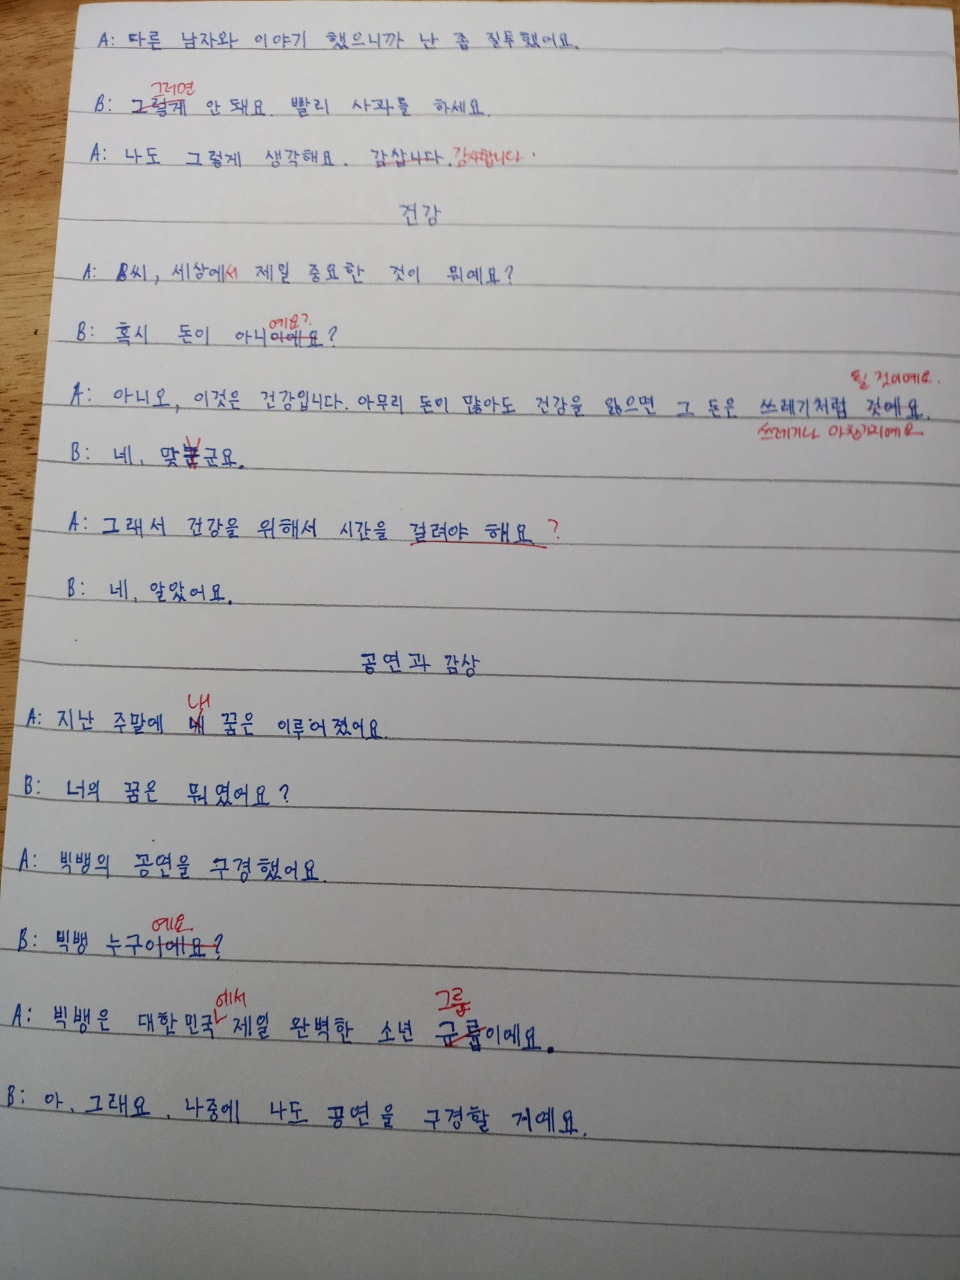 A: 다른 남자와 이야기 했으니까 난 좀 질투했어요.
그러면
B: 그렇게 안 돼요. 빨리 사과를 하세요.
A: 나도 그렇게 생각해요. 감삽니다. 감사합니다.
건강
A: B씨, 세상에서 제일 중요한 것이 뭐예요?
예요?
B: 혹시 돈이 아니이예요?
될 것이예요.
A: 아니오, 이것은 건강입니다. 아무리 돈이 많아도 건강을 잃으면 그 돈은 쓰레기처럼 것예요.
쓰레기나 마찬가지예요
B: 네, 맞군요.
A: 그래서 건강을 위해서 시간을 걸려야 해요 ?
B: 네, 알았어요.
공연과 감상
내
A: 지난 주말에 네 꿈은 이루어졌어요.
B: 너의 꿈은 뭐였어요?
A: 빅뱅의 공연을 구경했어요.
예요.
B: 빅뱅 누구이예요?
에서 그룹
A: 빅뱅은 대한민국 제일 완벽한 소년 균룹이예요.
B: 아, 그래요, 나중에 나도 공연을 구경할 거예요.